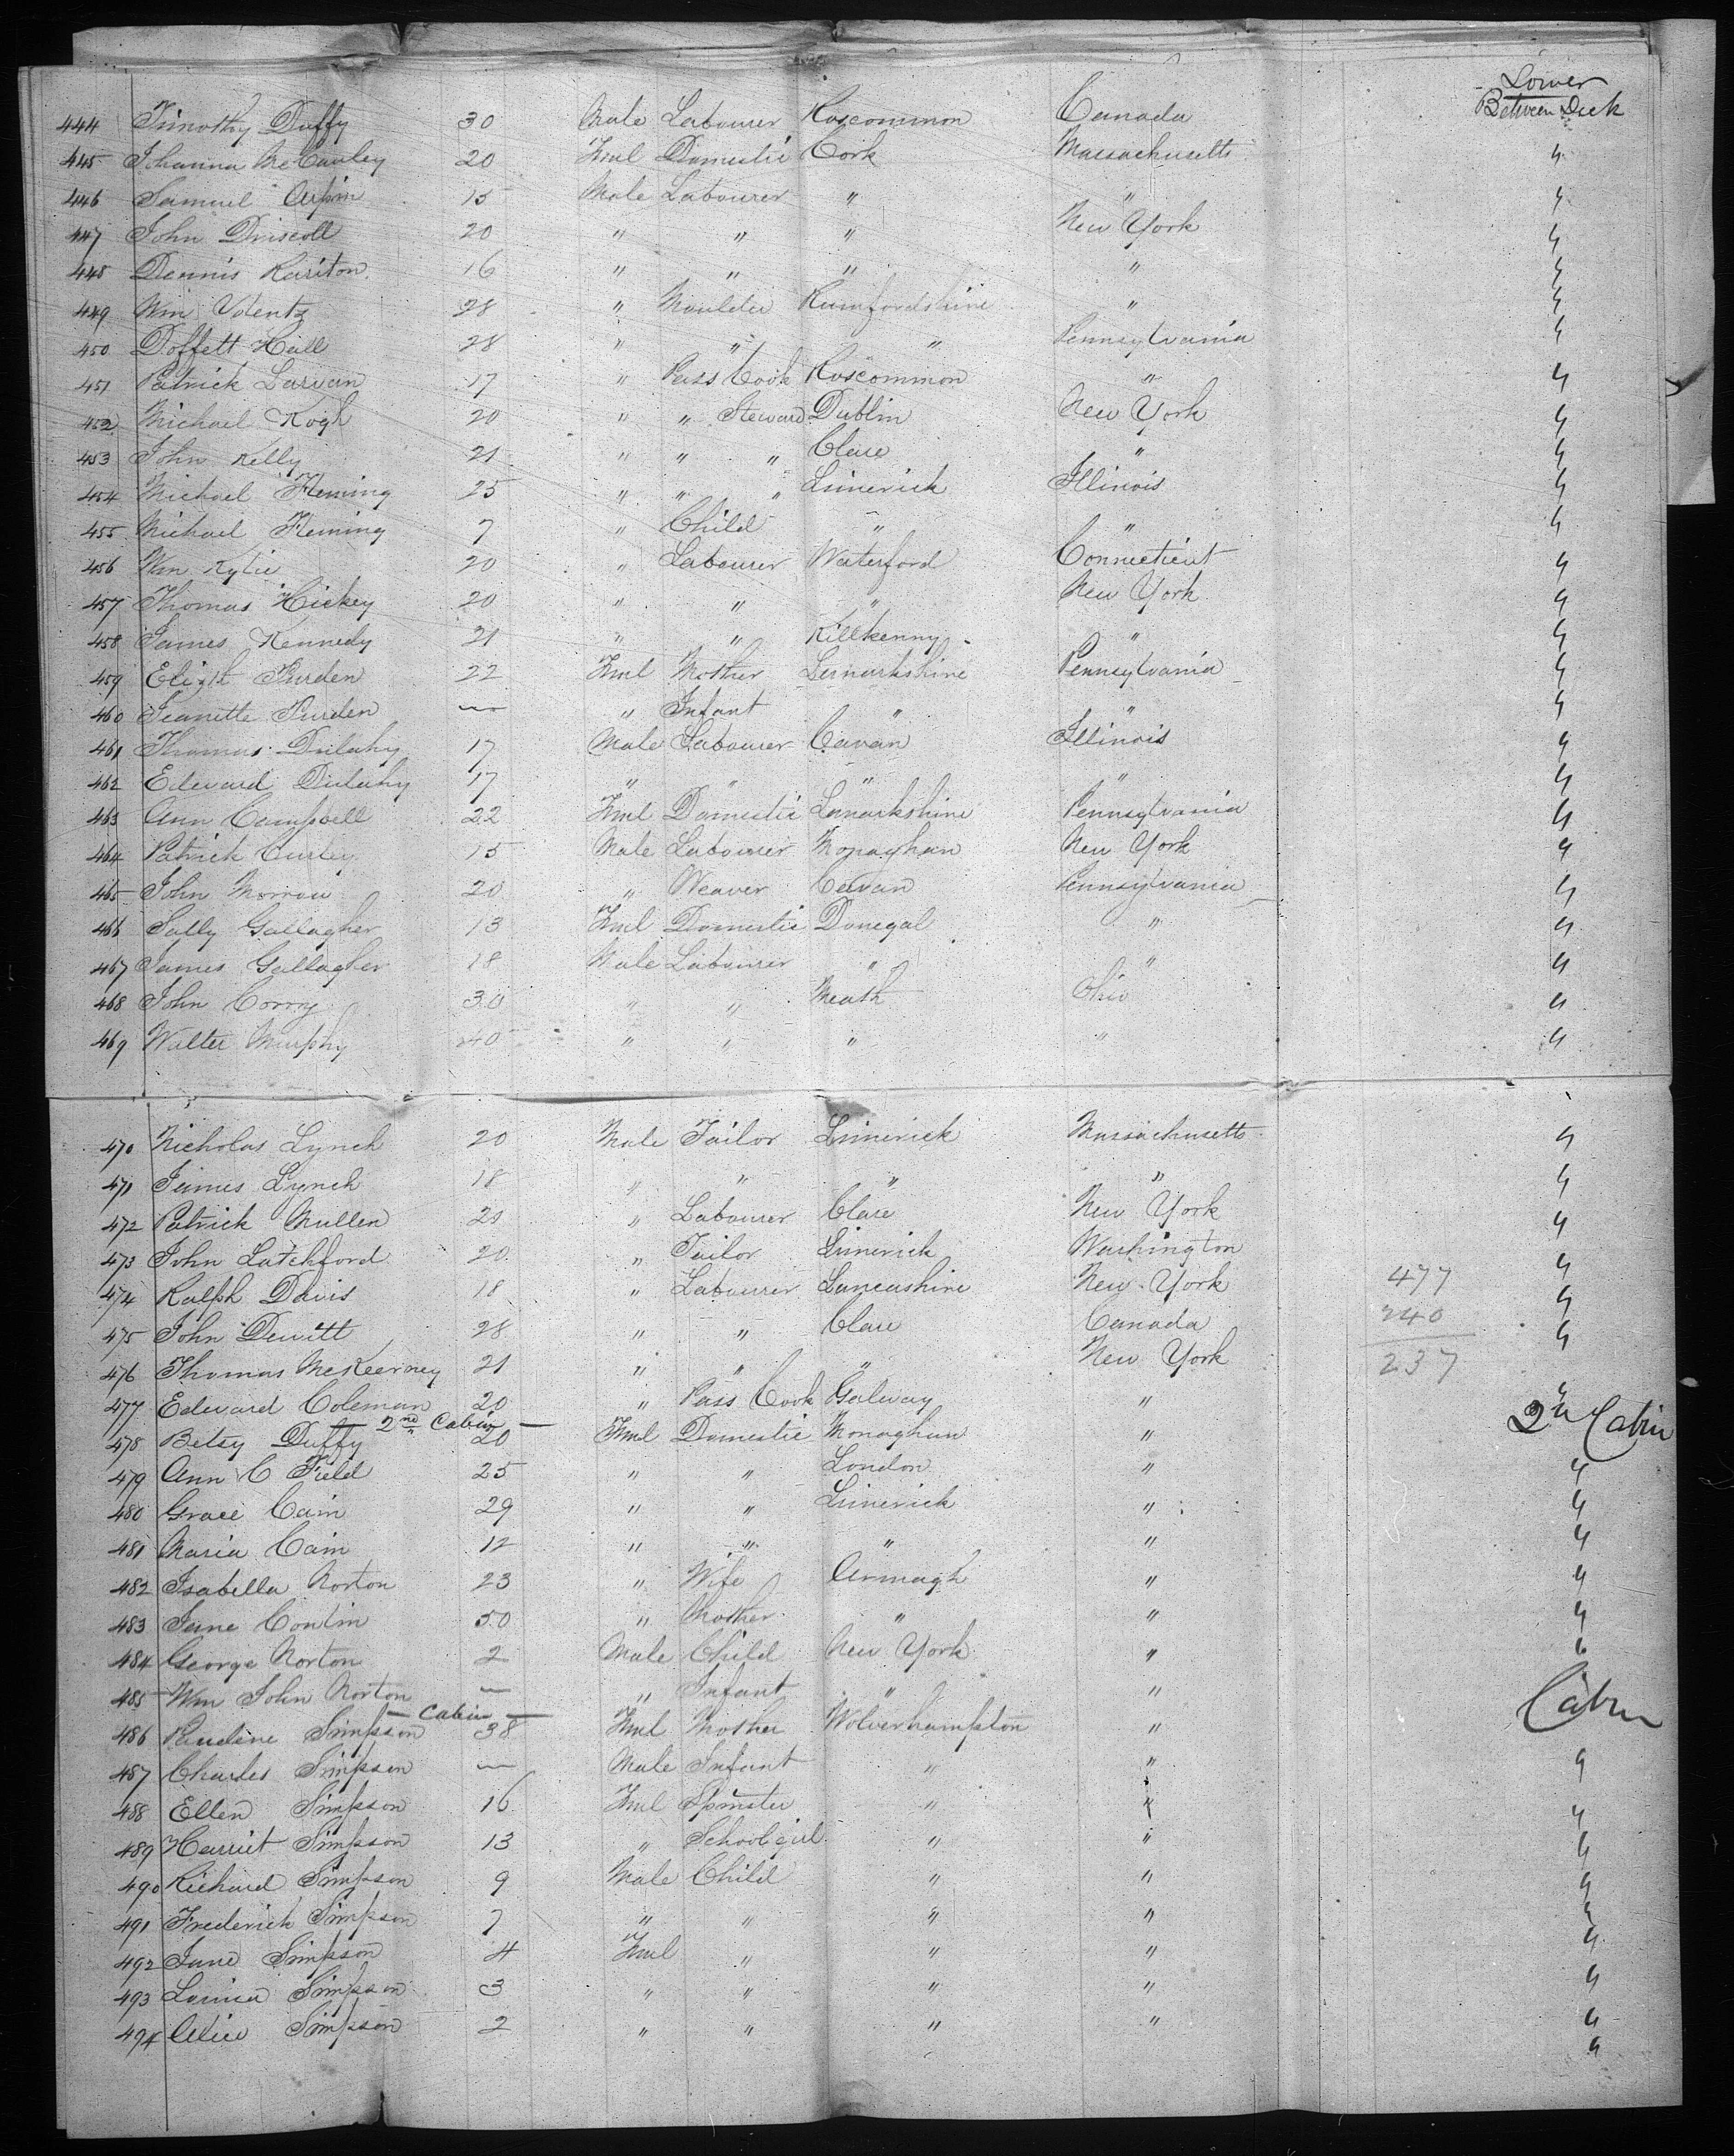 Lower
444 Timothy Duffy 30 Male Labourer Roscommon Canada Between Deck
445 Johanna McCauley 20 Fml Domestic Cork Massachusetts "
446 Samuel 15 Male Labourer " " "
447 John Driscoll 20 " " " New York "
448 Dennis Rariton 16 " " " " "
449 Wm 28 " Moulder Rumfordshire " "
450 Doffett Hall 28 " " " Pennsylvania "
451 Patrick Larvan 17 " Pass Cook Roscommon " "
452 Michael Kogh 20 " " Steward Dublin New York "
453 John Kelly 21 " " " Clare " "
454 Michael Fleming 25 " " " Limerick Illinois "
455 Michael Fleming 7 " Child " " "
456 Wm Kylie 20 " Labourer Waterford Connecticut "
457 Thomas Hickey 20 " " " New York "
458 James Kennedy 21 " " Killkenny " "
459 Elizth Purden 22 Fml Mother Lernarkshire Pennsylvania "
460 Jeanette Purden — " Infant " " "
461 Thomas Dulahy 17 Male Labourer Cavan Illinois "
462 Edward Dulahy 17 " " " " "
463 Ann Campbell 22 Fml Domestic Lanarkshire Pennsylvania "
464 Patrick Curley 15 Male Labourer Monaghan New York "
465 John Morrow 20 " Weaver Cavan Pennsylvania "
466 Sally Gallagher 13 Fml Domestic Donegal " "
467 James Gallagher 18 Male Labourer " " "
468 John Corry 30 " " Meath Ohio "
469 Walter Murphy 40 " " " " "
470 Nicholas Lynch 20 Male Tailor Limerick Massachusetts "
471 James Lynch 18 " " " " "
472 Patrick Mullen 20 " Labourer Clare New York "
473 John Latchford 20 " Tailor Limerick Washington "
474 Ralph Davis 18 " Labourer Lancashire New York 477 "
475 John Dewitt 28 " " Clare Canada 240 "
476 Thomas McKeerney 21 " " " New York 237
477 Edward Coleman 20 " Pass Cook Galway " "
— 2nd Cabin —
478 Betsy Duffy 20 Fml Domestic Monaghan " 2nd Cabin
479 Ann C Field 25 " " London " "
480 Grace Cain 29 " " Limerick " "
481 Maria Cain 12 " " " " "
482 Isabella Norton 23 " Wife Armagh " "
483 Jane Contin 50 " Mother " " "
484 George Norton 2 Male Child New York " "
485 Wm John Norton — " Infant " "
— Cabin —
486 Paudine Simpson 38 Fml Mother Wolverhampton " Cabin
487 Charles Simpson — Male Infant " " "
488 Ellen Simpson 16 Fml Spinster " " "
489 Harriet Simpson 13 " Schoolgirl " " "
490 Richard Simpson 9 Male Child " " "
491 Frederick Simpson 7 " " " " "
492 Jane Simpson 4 Fml " " " "
493 Louisa Simpson 3 " " " " "
494 Alice Simpson 2 " " " " "
"